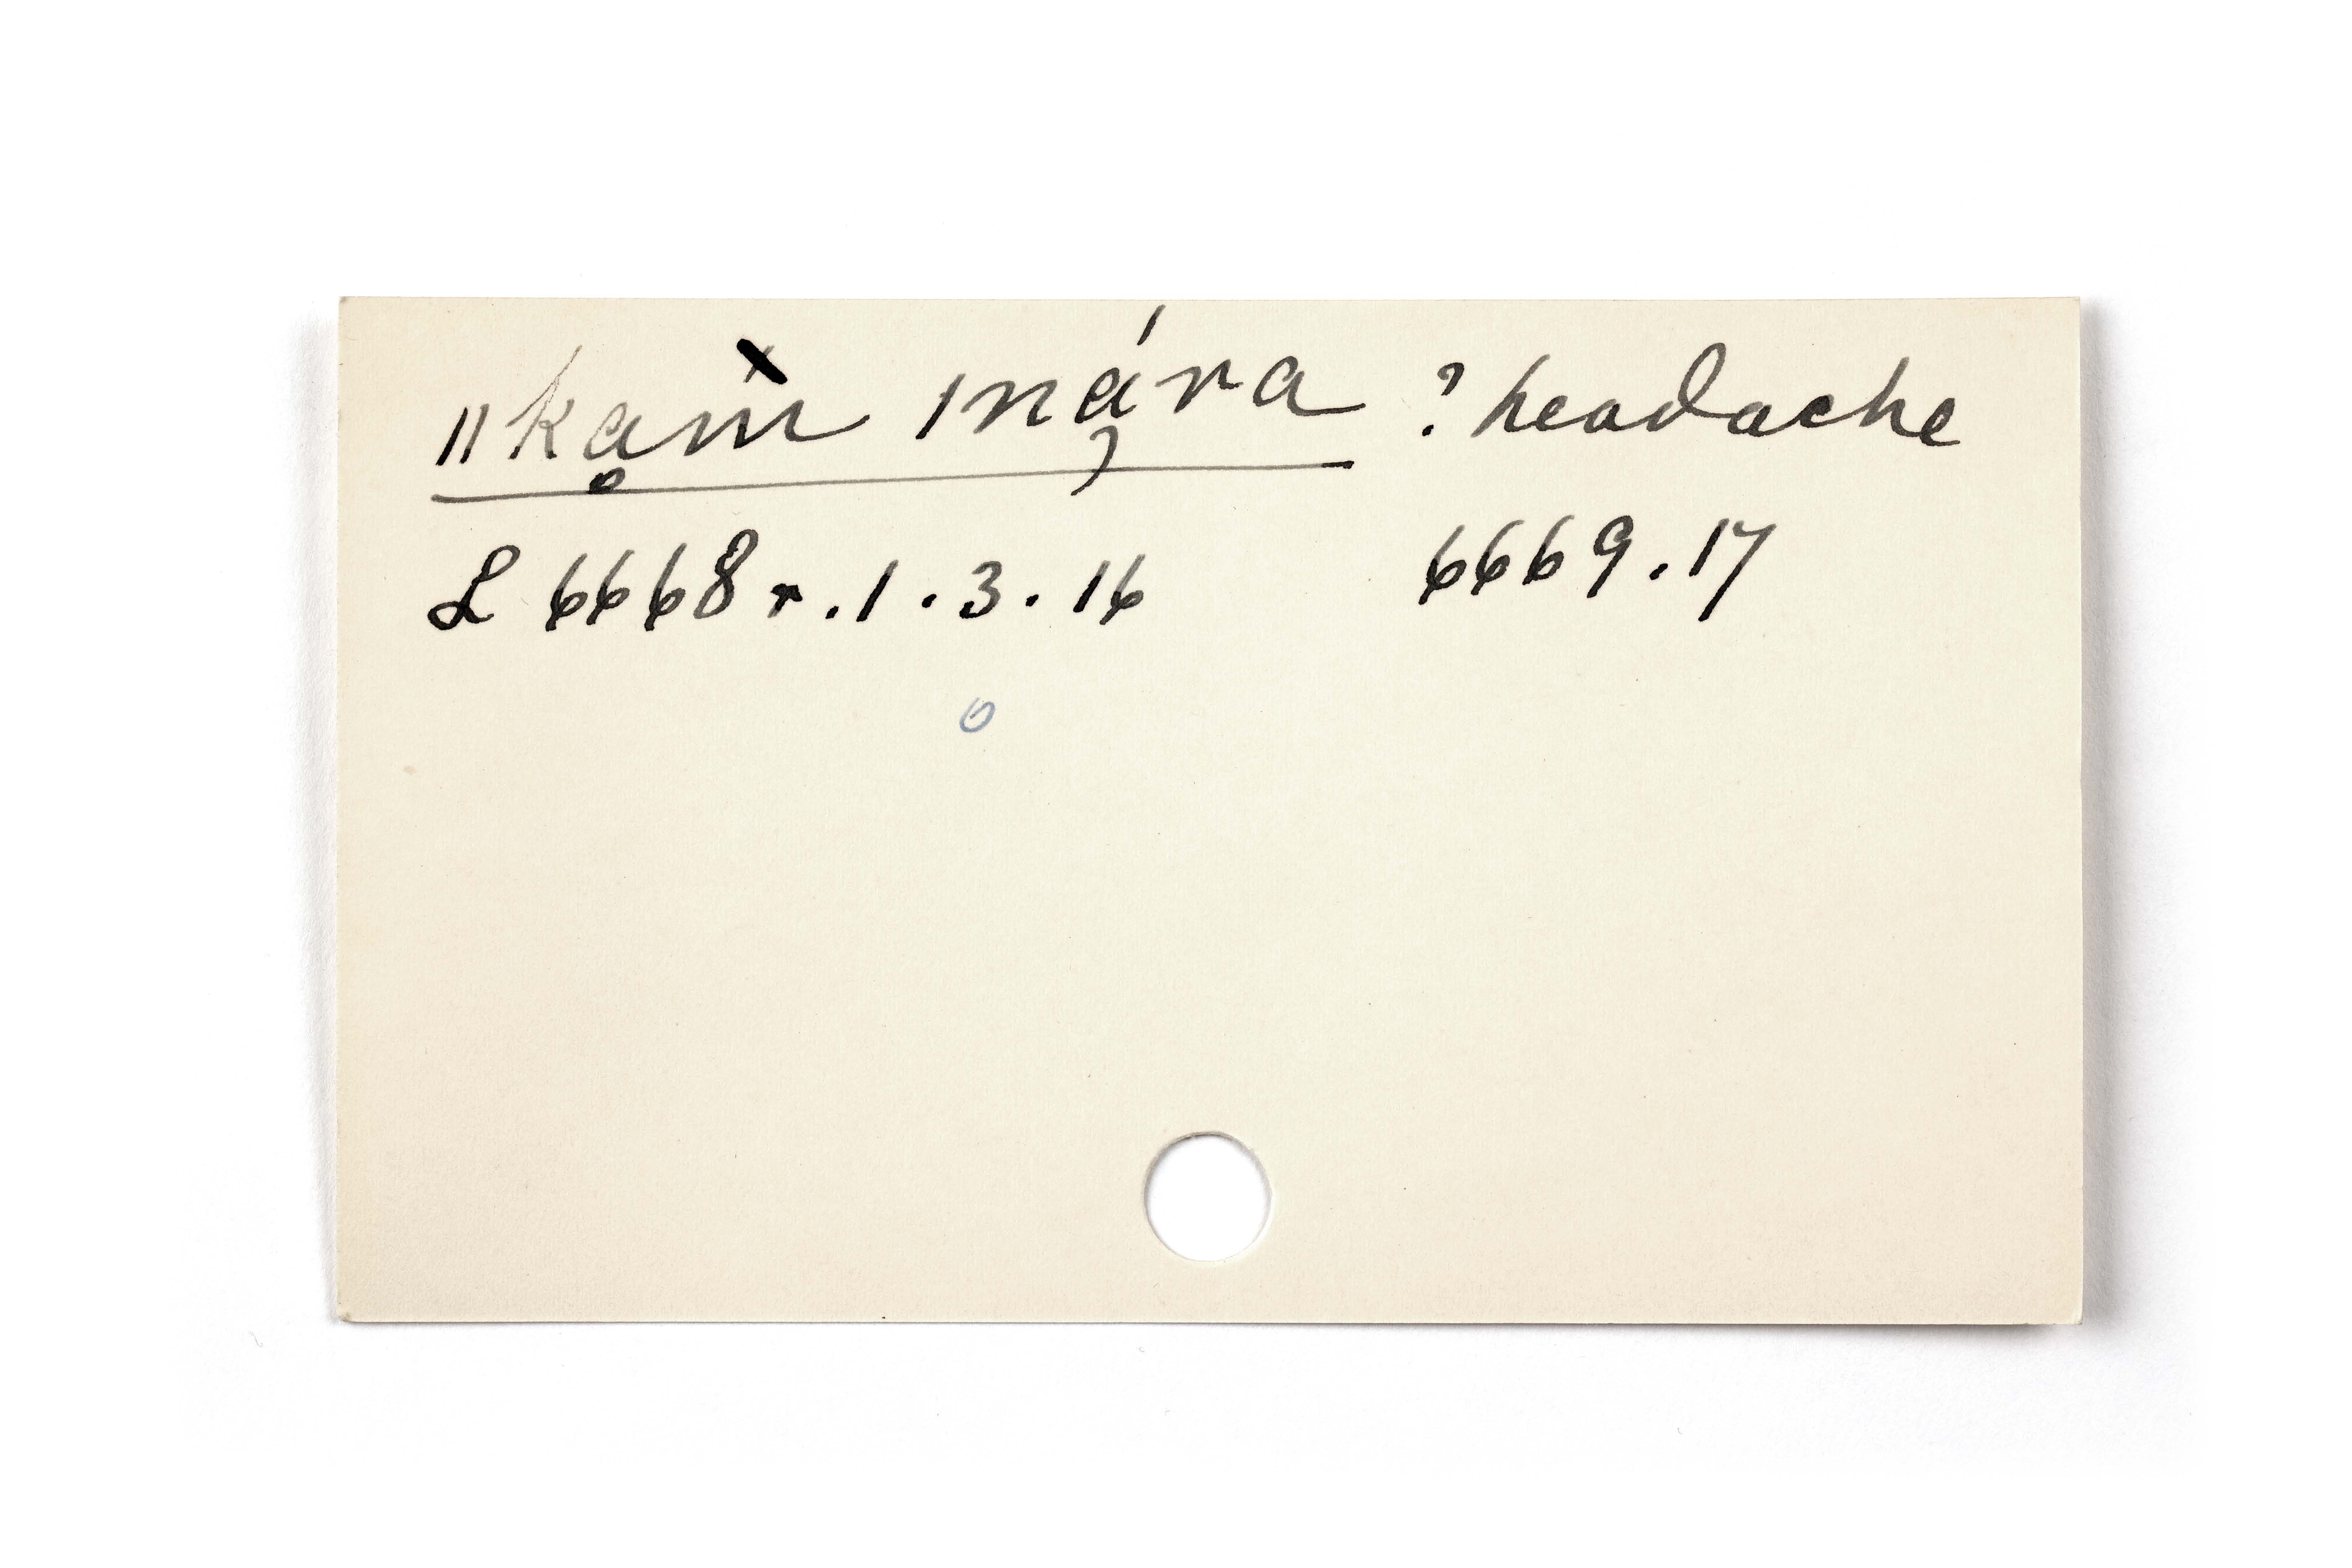 ǁkam̥̀ ǀná̦ra ? headache
L 6668r.1.3.16 6669.17
o